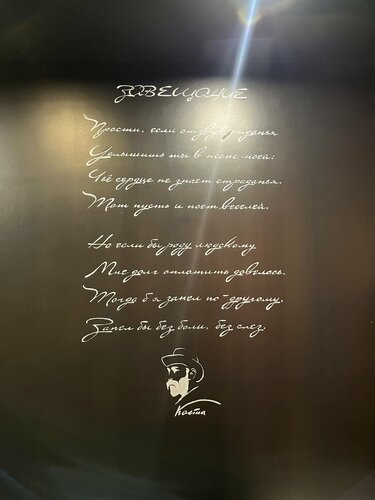 ЗАВЕЩАНИЕ
Прости, если отзвук рыданья
Услышишь ты в песне моей:
Чьё сердце не знает страданья,
Тот пусть и поёт веселей.
Но если бы роду людскому
Мне долг оплатить довелось,
Тогда б я запел по-другому,
Запел бы без боли, без слез.
Коста